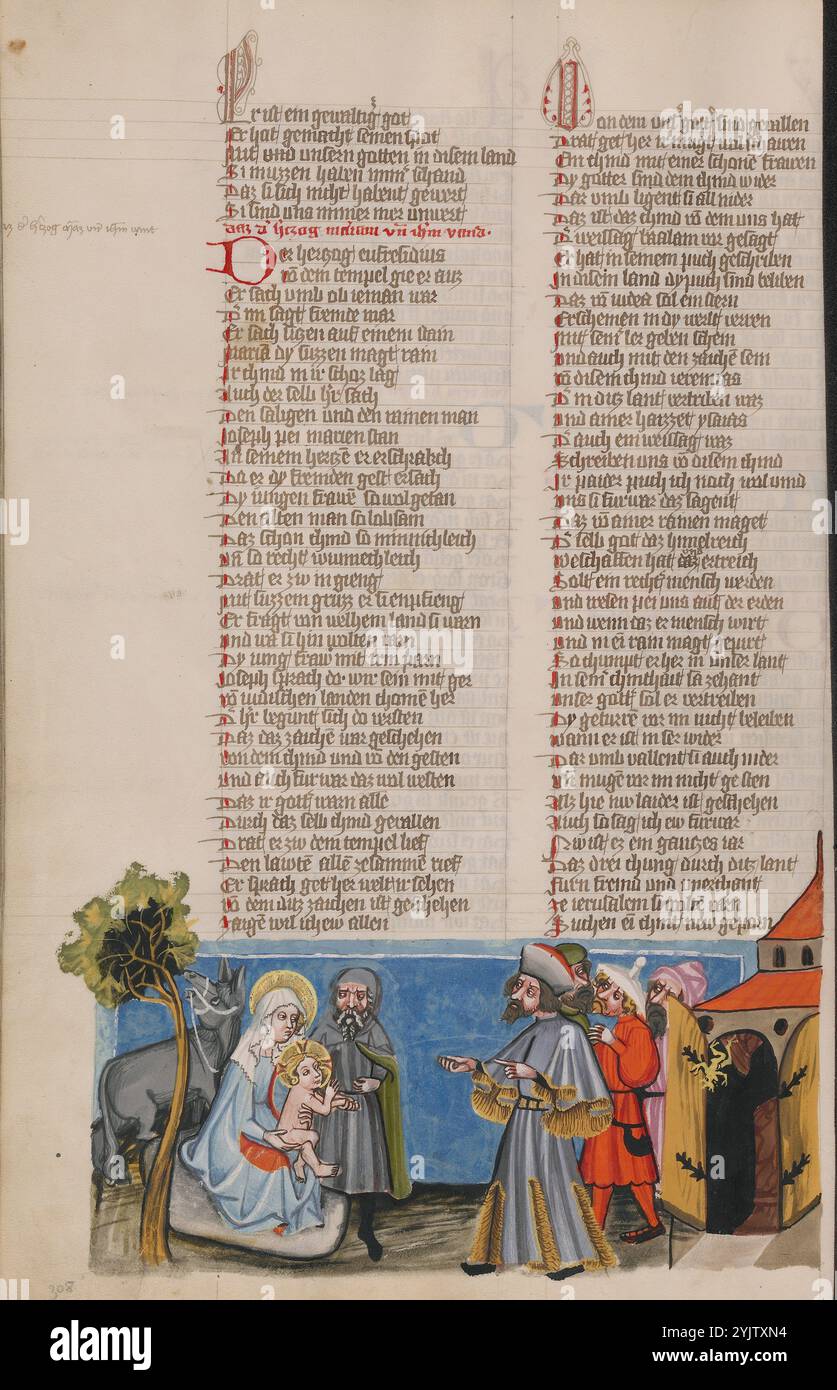 Er ist ein gewaltiger got
Er hat gemacht seinen spot
Mit und unsern gotten in disem land
Si muzzen haben immer schand
Daz si sich nicht habent gewert
Si sind uns nimmer mer unwert
Der hertzog eufrosidius
võ dem tempel gie er auz
Er sach umb ob ieman war
Der im sagt fremde mar
Er sach sitzen auf einem stain
Maria dy suzzen magt rain
Ir chind in ir schoz lag
Auch der selb h'r sach
Den saligen und den rainen man
Joseph pei marien stan
In seinem hertzē er erschrakch
Do er dy fremden gest ersach
Dy iungen frawē so wol getan
Den alten man so lobsam
Daz schon chind so minnichleich
Uñ so recht wunnechleich
Drat er zw in gieng
Mit suzzem gruzz er si enpfieng
Er fragt von welhem land si warn
Und wa si hin wolten varn
Dy iung fraw mit irm parn
Joseph sprach do wir sein mit ger
võ iudischen landen chomē her
D' h'r begunt sich do versten
Daz daz zaichē war geschehen
Von dem chind und võ den gesten
Und auch fur war daz wol westen
Daz ir gott warn alle
Durch daz selb chind gevallen
Drat er zw dem tempel lief
Den lawtē allē zesamme rief
Er sprach get her welt ir sehen
Võ dem ditz zaichen ist geschehen
Zaigē wil ich ew allen
Von dem uns' gott' sind gevallen
Drat get her ir mugt wol schawen
Ein chind mit einer schonē frawen
Dy gotter sind dem chind wider
Dar umb ligent si all nider
Daz ist daz chind võ dem uns hat
D' weissag balaam vor gesagt
Er hat in seinem puch geschriben
In disem land dy puch sind beliben
Daz võ iudea sol ein stern
Erschemen in dy werlt verren
Mit seinr ler geben schein
Und auch mit den zaichē sein
Võ disem chind ieremias
D' in ditz lant vertriben waz
Und ainer haizzet ysaias
D' auch ein weissag waz
Schreiben uns võ disem chind
Ir paider puch ich noch wol vind
Uns si furwar daz sagent
Daz võ ainer rainen maget
D' selb got daz himelreich
Beschaffen hat und daz ertreich
Solt ein recht mensch werden
Und wesen pei uns auf der erden
Und wenn daz er mensch wirt
Und in eī rain magt gepirt
So chumpt er her in unser lant
In seinr chinthait sa zehant
Unser gott' sol er vertreiben
Dy geturrē vor im nicht beleiben
Wann er ist in ser wider
Dar umb vallent si auch nider
Uñ mugē vor im nicht gesten
Alz hie nw laider ist geschehen
Auch so sag ich ew furwar
Nw ist ez ein gantzes iar
Daz drei chung durch ditz lant
Furn fremd und unerchant
Ze ierusalem si wolten varn
Suchen eī chind new geporn
308
alamy
Image ID: 2YJTXN4
www.alamy.com